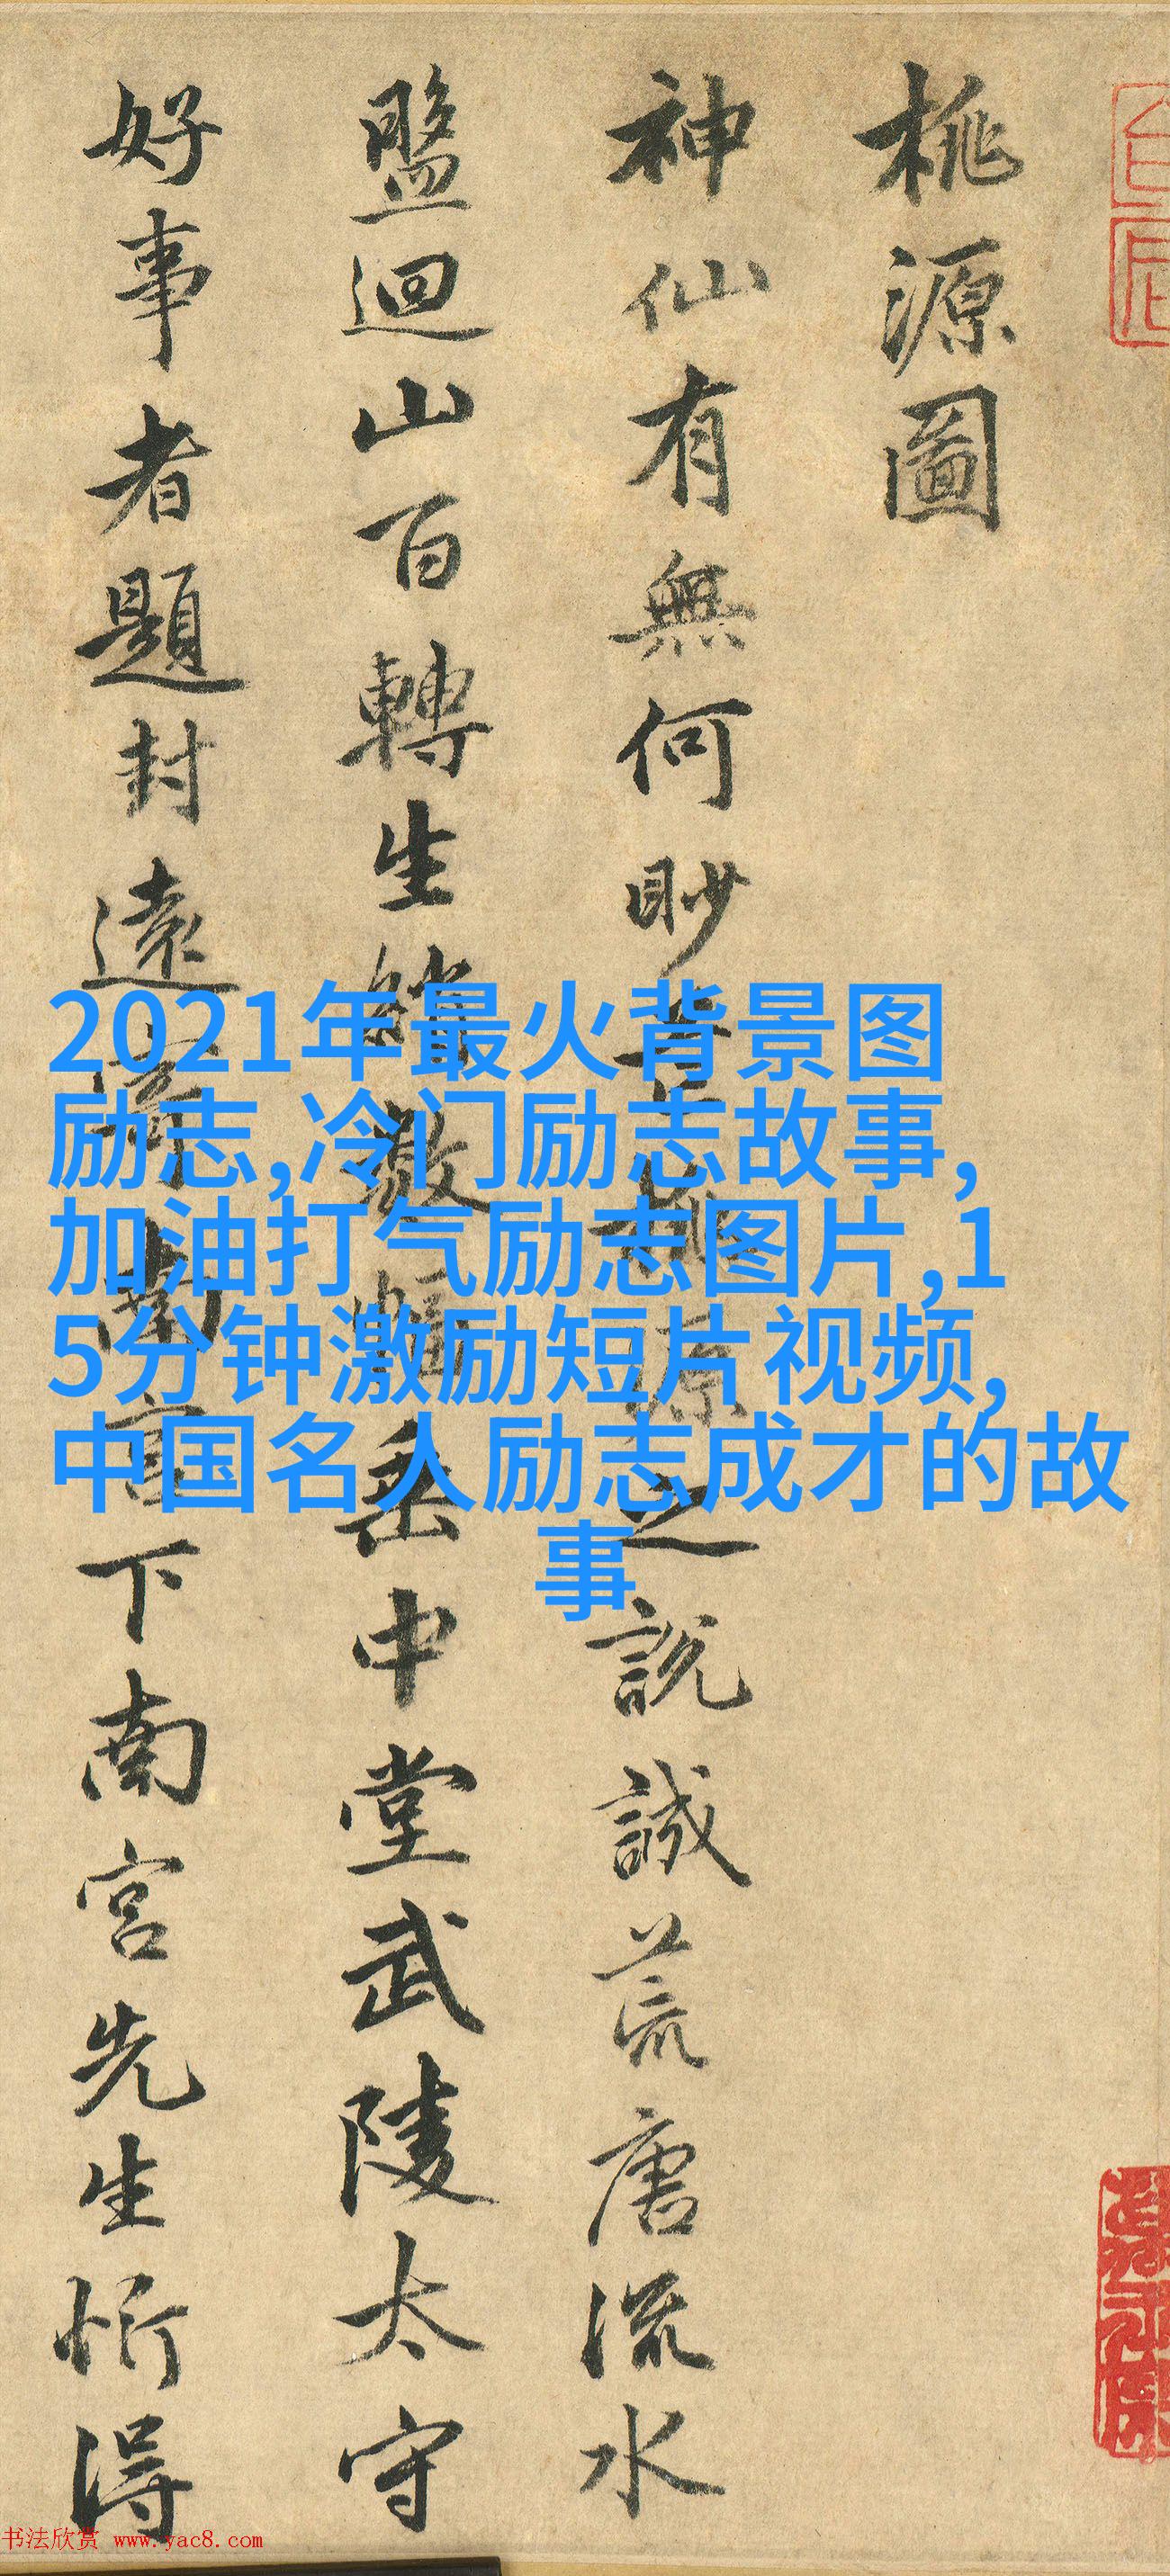 桃源圖
神仙有無何眇芒桃源之說誠荒唐流水
盤迴山百轉生綃數幅垂中堂武陵太守
好事者題封遠寄南宮下南宮先生忻得
2021年最火背景图
励志,冷门励志故事,
加油打气励志图片,1
5分钟激励短片视频,
中国名人励志成才的故
事
书法欣赏 www.yac8.com